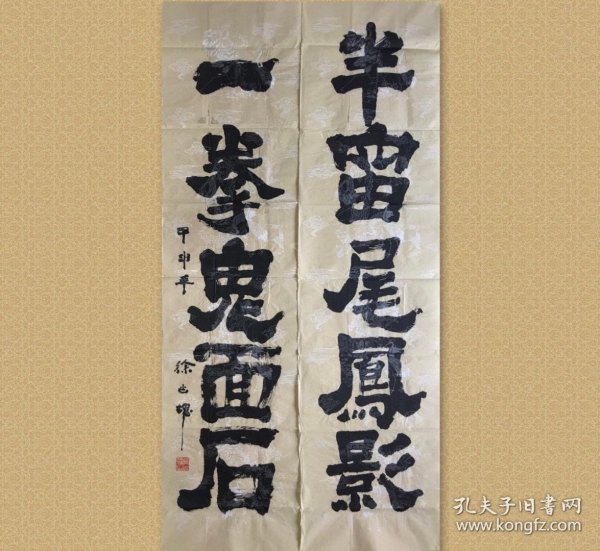 半窗尾鳳影
一拳鬼面石
甲申年
孔夫子旧書网
www.kongfz.com